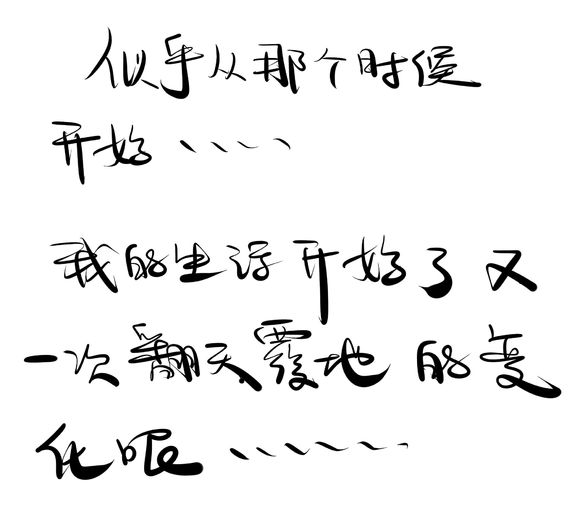 似乎从那个时候
开始、、、、
我的生活开始了又
一次翻天覆地的变
化呢、、、、、、